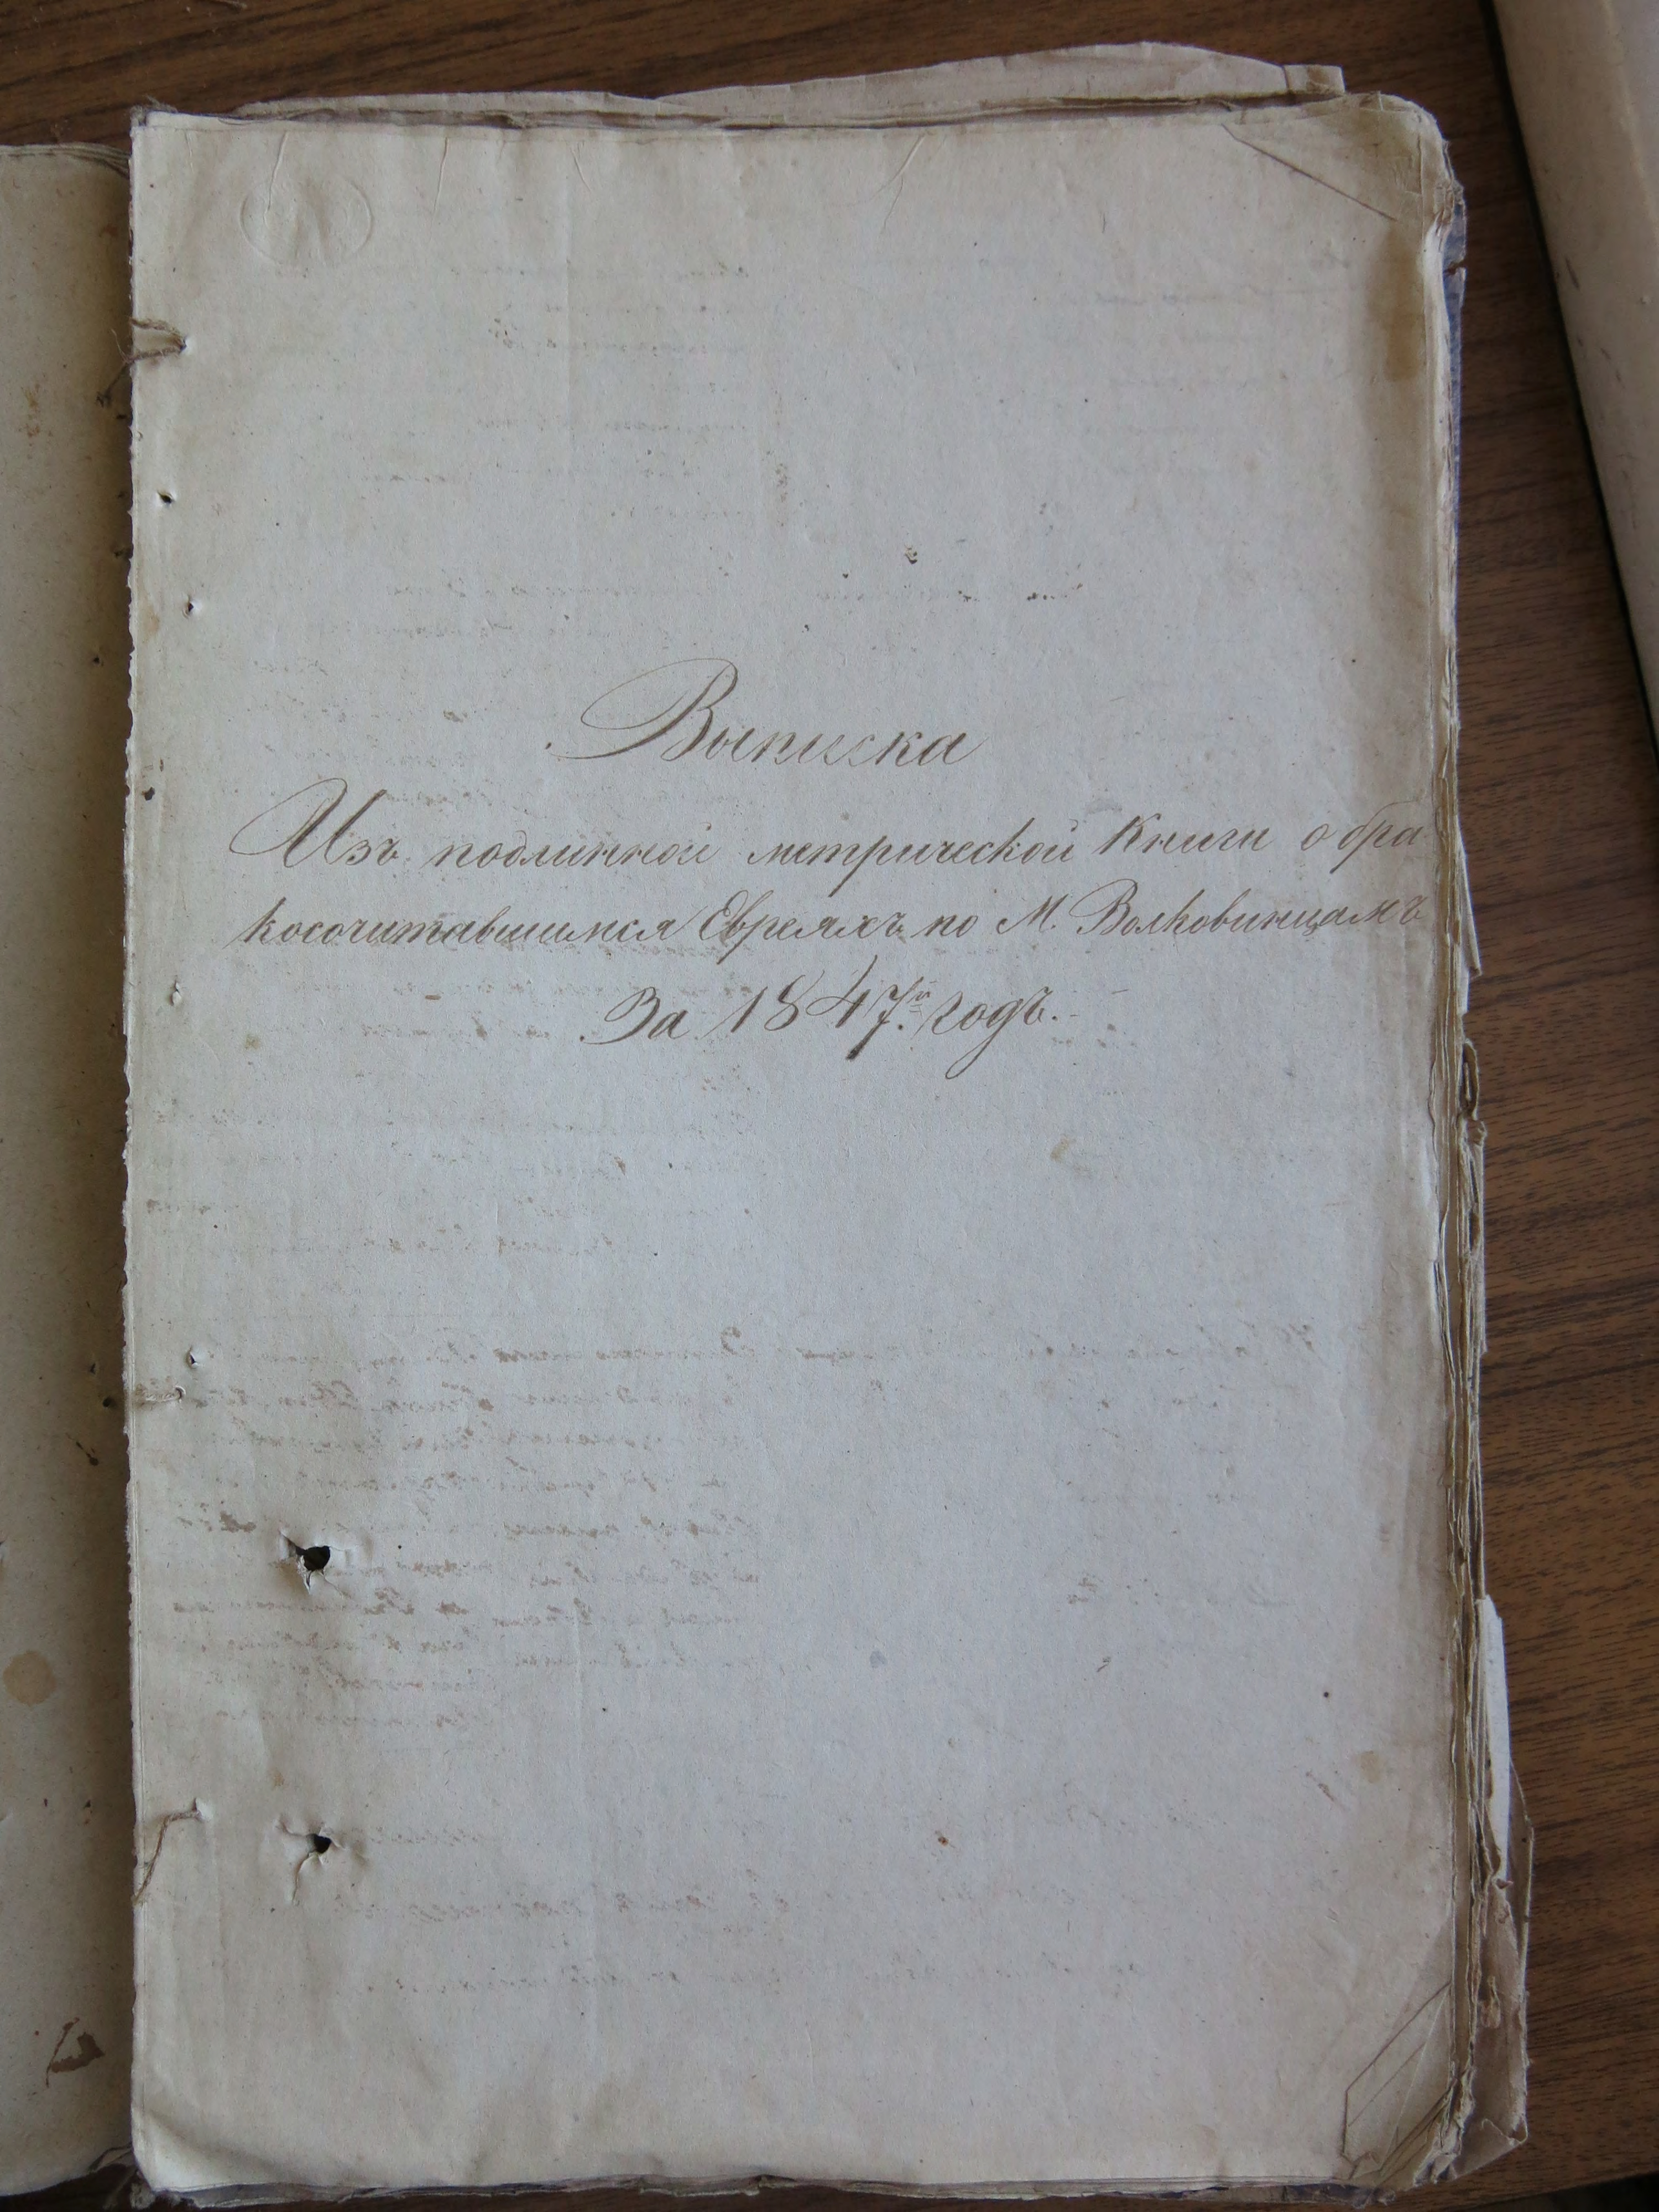 Выписка
Изъ подлинной метрической Книги о бра
косочитавшимся Евреяхъ по М. Волковинцамъ
За 1847й годъ.